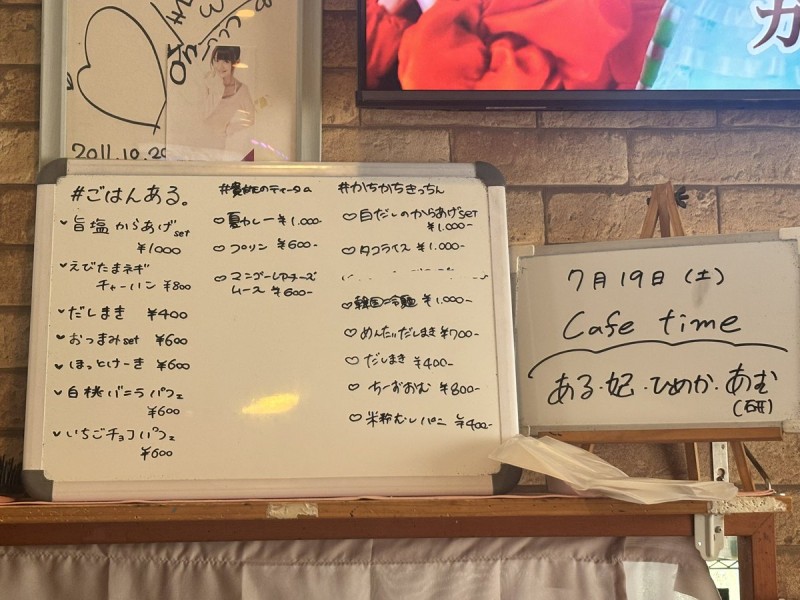 2011.10.20
#ごはんある。
旨塩からあげset
¥1000
えびたまネギ
チャーハン ¥800
だしまき ¥400
おつまみset ¥600
ほっとけーき ¥600
白桃バニラパフェ
¥600
いちごチョコパフェ
¥600
のティータイム
夏カレー ¥1.000-
プリン ¥600-
マンゴーレアチーズ
ムース ¥600-
#かちかちきっちん
白だしのからあげset
¥1.000-
タコライス ¥1.000-
韓国冷麺 ¥1.000-
めんたいだしまき ¥700-
だしまき ¥400-
ちーずおむ ¥800-
米粉むしパン ¥400-
7月19日(土)
Cafe time
ある・妃・ひめか・あむ
(研)
か